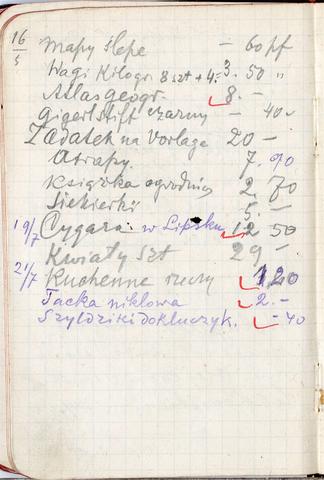 16/5 Mapy ślepe — 60 pf
Wagi Kilogr. 8 szt + 4 = 3. 50 "
Atlas geogr. 8. —
Gigerlstift czarny — 40 "
Zadatek na Vorlage 20 —
Atrapy. 7. 90
Książka ogrodnicz 2. 70
Siekierki 5. —
19/7 Cygara w Lipsku 12 50
Kwiaty szt 29 —
21/7 Kuchenne rzeczy 1,20
Tacka niklowa 2. —
Szyldziki do kluczyk. — 40